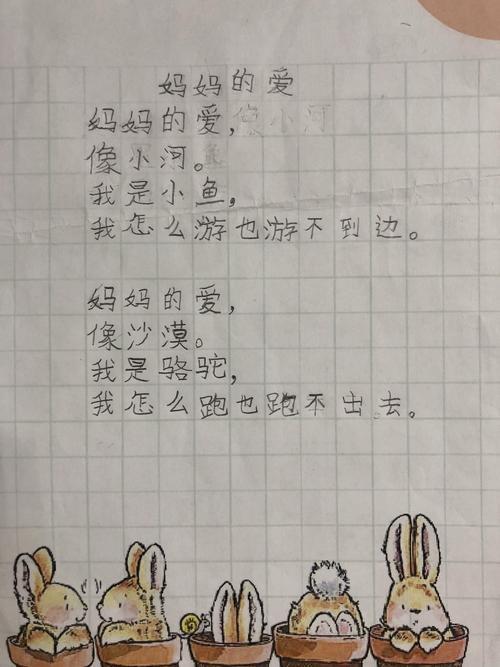 妈妈的爱
妈妈的爱,像小河
像小河。
我是小鱼,
我怎么游也游不到边。
妈妈的爱,
像沙漠。
我是骆驼,
我怎么跑也跑不出去。